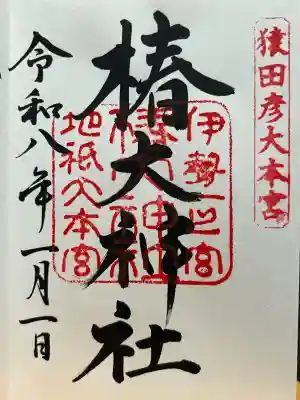 猿田彦大本宮
椿大神社
伊勢一之宮
地祇大本宮
令和八年一月一日